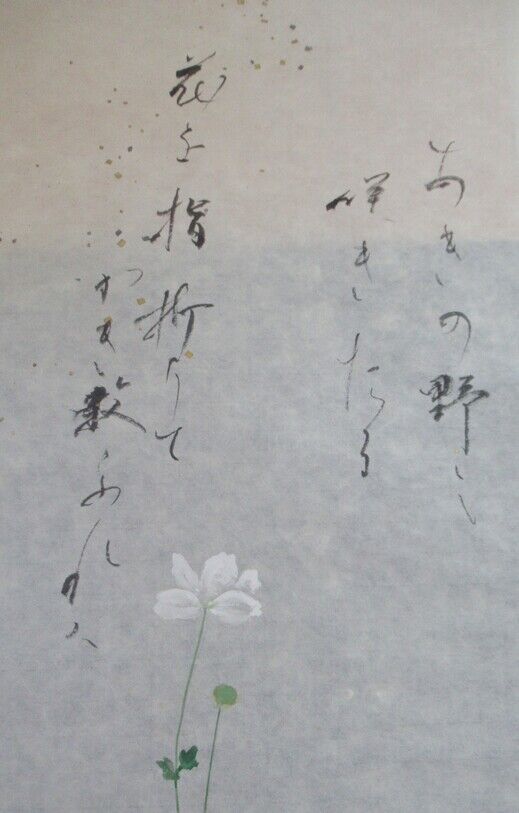 あきの野に
咲きたる
花を指折りて
かき数ふれは